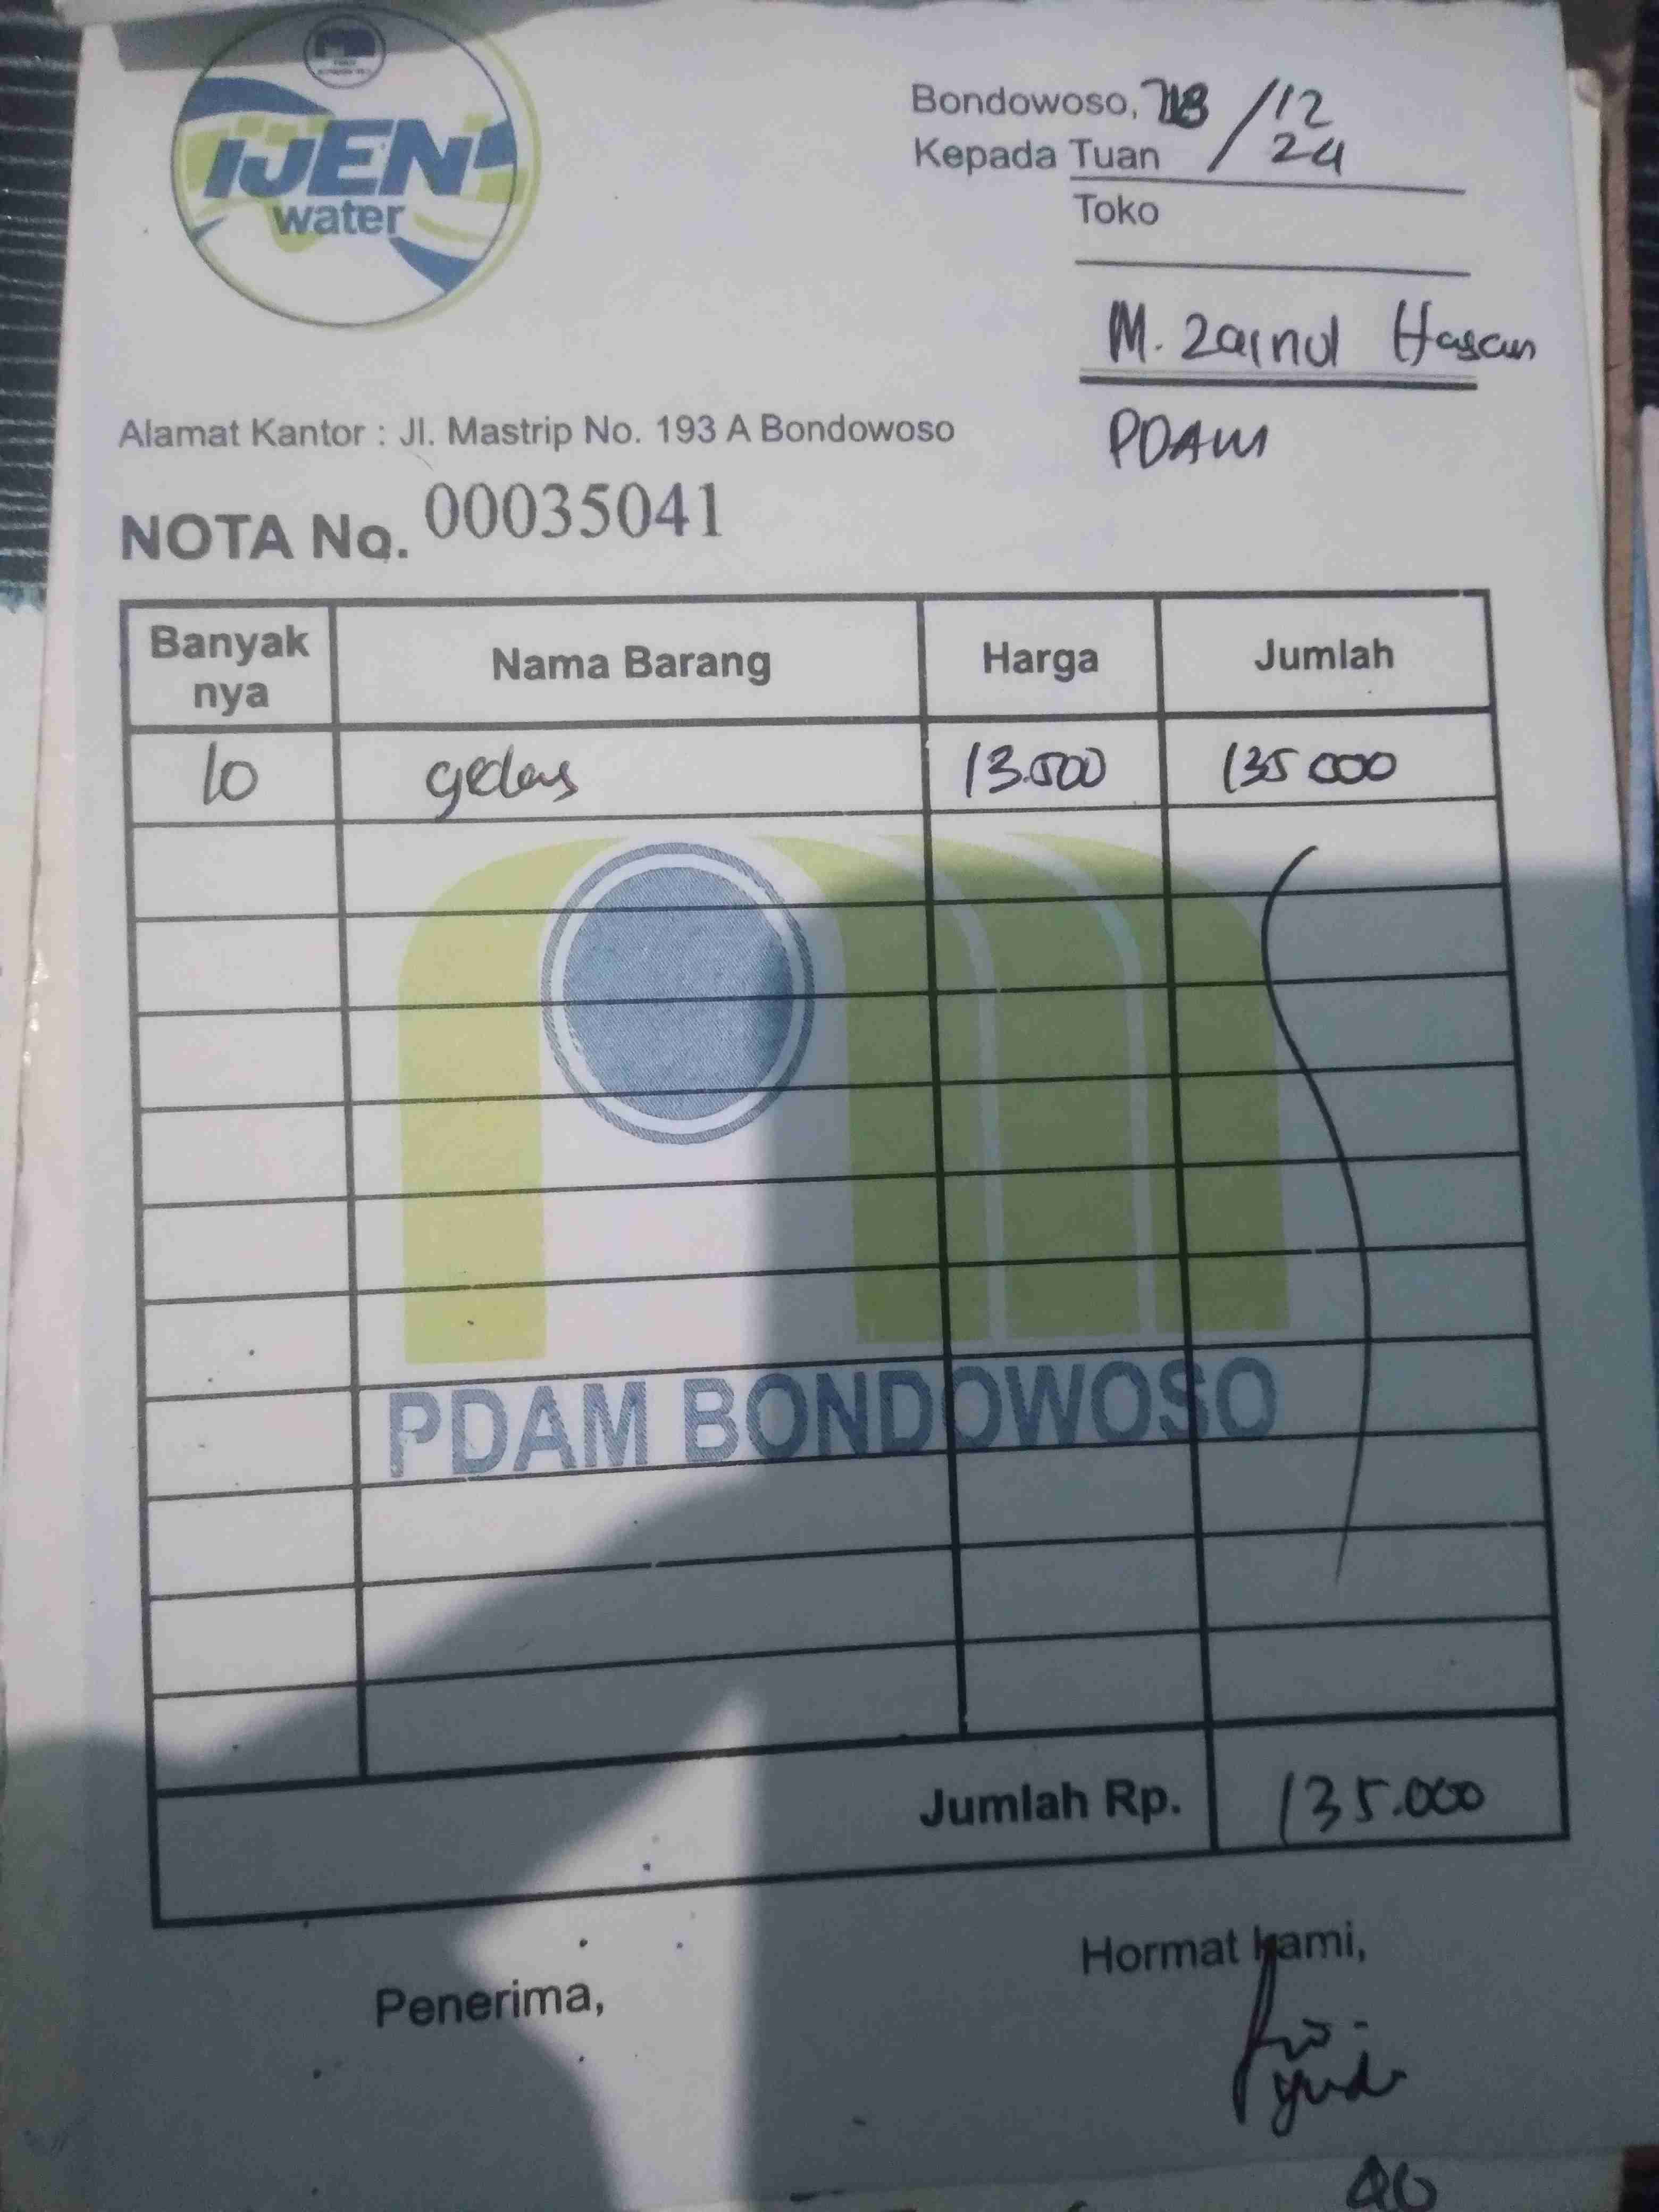 IJEN
water
Bondowoso, /12
Kepada Tuan 24
Toko
M. Zainul Hasan
PDAM
Alamat Kantor : Jl. Mastrip No. 193 A Bondowoso
NOTA No. 00035041
Banyak nya Nama Barang Harga Jumlah
10 gelas 13.500 135 000
PDAM BONDOWOSO
Jumlah Rp. 135.000
Penerima,
Hormat kami,